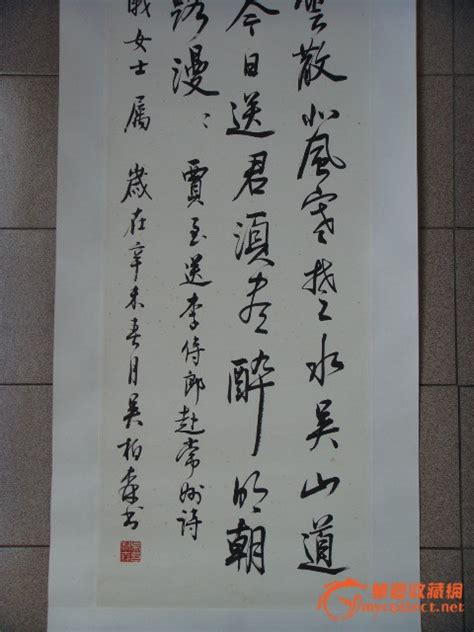 雲散北風寒楚水吳山道
今日送君須盡醉明朝
路漫〻
賈至送李侍郎赴常州詩
女士屬 歲在辛未春月吳柏森書
華夏收藏網
mycollect.net